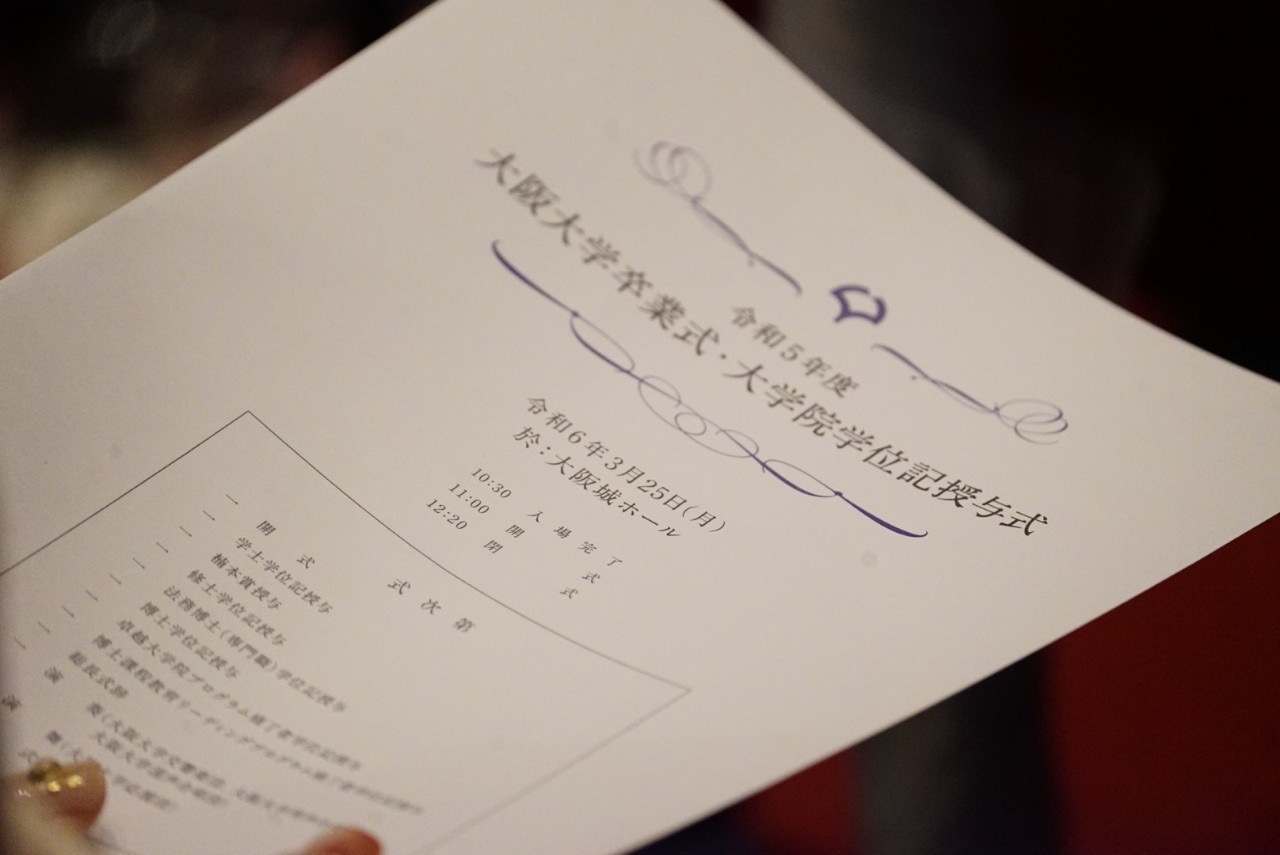 令和5年度
大阪大学卒業式・大学院学位記授与式
令和6年3月25日(月)
於：大阪城ホール
10:30 入場完了
11:00 開式
12:20 閉式
式次第
一 開式
一 学士学位記授与
一 楠本賞授与
一 修士学位記授与
一 法務博士(専門職)学位記授与
一 博士学位記授与
一 卓越大学院プログラム修了者学位記授与
一 博士課程教育リーディングプログラム修了者学位記授与
一 総長式辞
演奏(大阪大学交響楽団、大阪大学